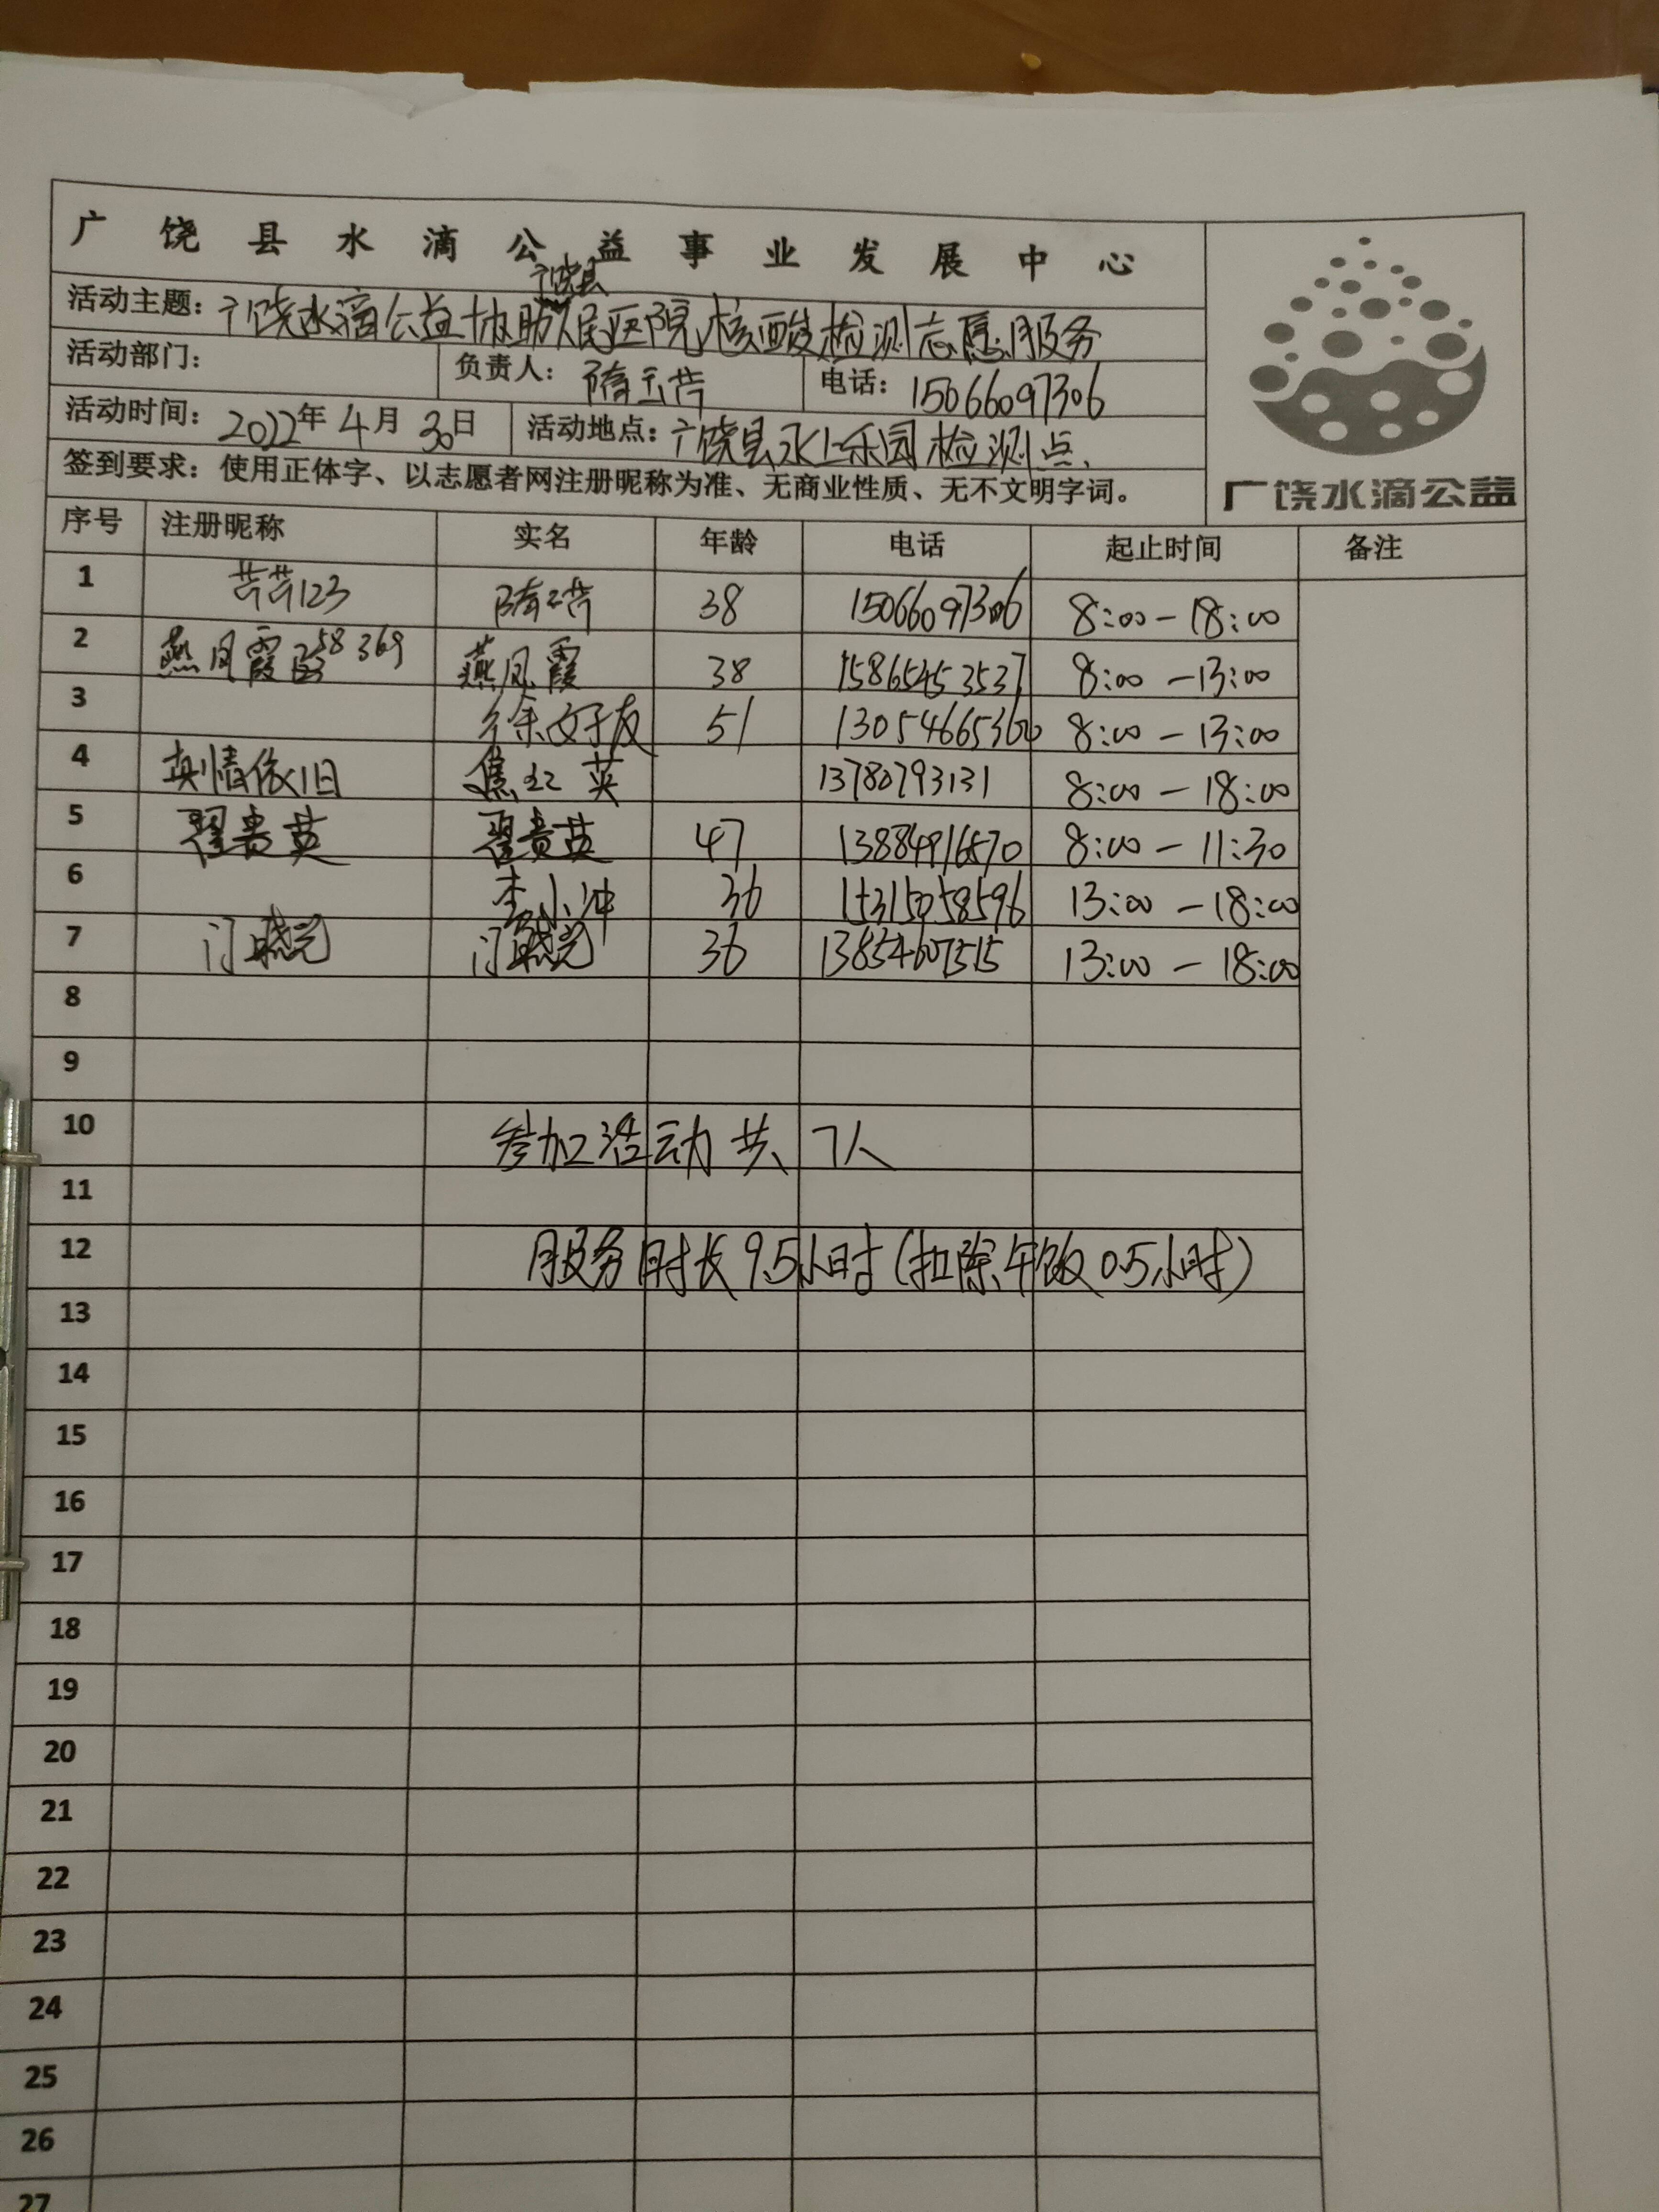 广饶县水滴公益事业发展中心
广饶县
活动主题：广饶水滴公益协助人民医院核酸检测志愿服务
活动部门： 负责人：隋玉芹 电话：15066097306
活动时间：2022年4月30日 活动地点：广饶县水上乐园检测点
签到要求：使用正体字、以志愿者网注册昵称为准、无商业性质、无不文明字词。
广饶水滴公益
序号 注册昵称 实名 年龄 电话 起止时间 备注
1 芹芹123 隋玉芹 38 15066097306 8:00-18:00
2 燕凤霞 58369 燕凤霞 38 15865453537 8:00-13:00
3 徐好友 51 13054665360 8:00-13:00
4 真情依旧 焦红英 13780793131 8:00-18:00
5 翟贵英 翟贵英 47 13884916570 8:00-11:30
6 李小冲 36 15315058596 13:00-18:00
7 门晓光 门晓光 36 13854607515 13:00-18:00
8
9
10 参加活动共7人
11
12 服务时长9.5小时(扣除午饭0.5小时)
13
14
15
16
17
18
19
20
21
22
23
24
25
26
27